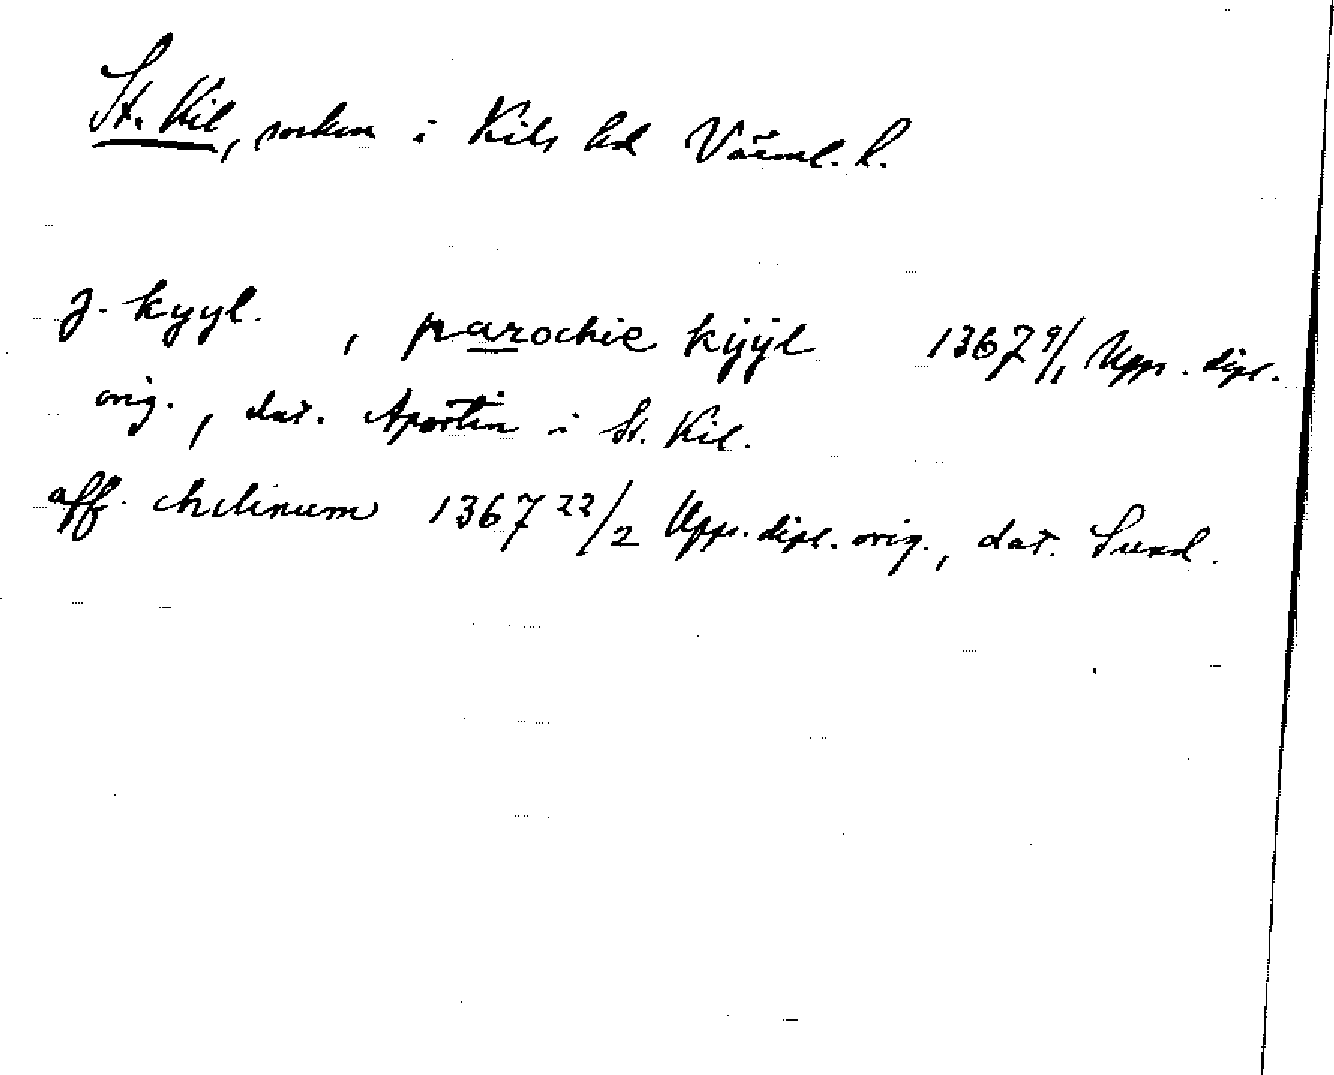 St. Kil, socken i Kils hd Värml. l.
J. kyyl. , parochie kÿÿl 1367 9/1 Upps. dipl.
orig., dat. Apertin i St. Kil.
aff. chelinum 1367 22/2 Upps. dipl. orig., dat. Sund.